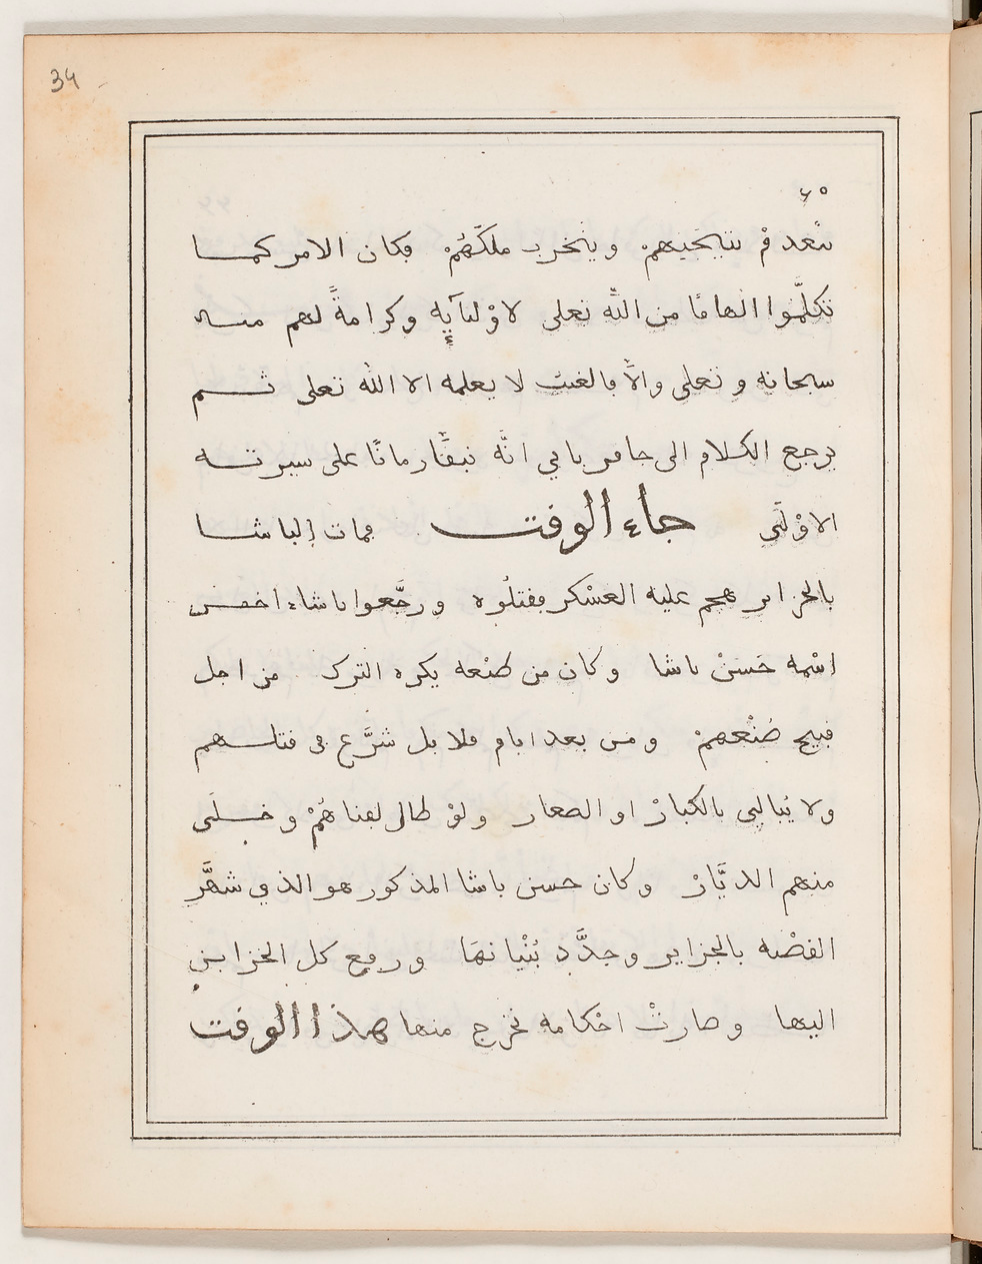 34
٦٥
تكلَّموا الهامًا من اللّه تعلى لاوْليآيِه وكرامةً لهم منه
سبحانه وتعلى والاّ فالغيب لا يعلمه الا الله تعلى ثم
يرجع الكلام الى جافر باي انّه زمانًا على سيرته
الاوْلَى جاء الوقت فمات الباشا
بالجزاير هجم عليه العسْكر فقتلُوه ورجَّعوا باشاء اخر
اسْمه حَسَنْ باشا وكان من طبْعه يكره الترك من اجل
قبيح صُنْعهمْ ومن بعد ايام فلايل شرَّع في قتلهم
ولا يُبالِي بالكبارْ او الصغار ولوْ طال لفناهُمْ وخلَى
منهم الديَّارْ وكان حسن باشا المذكور هو الذي شهَّر
القصْبه بالجزاير وجدَّد بُنْيانهَا ورفع كل الخزاين
اليها وصارتْ احْكامه تخرج منها هذا الوقت